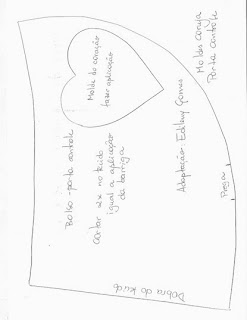 Moldes coruja
Porta controle
Adaptação: Edileny Gomes
Molde do coração
fazer aplicação
Bolso - porta controle
cortar 2x no tecido
igual a aplicação
da barriga
Prega
Dobra do tecido